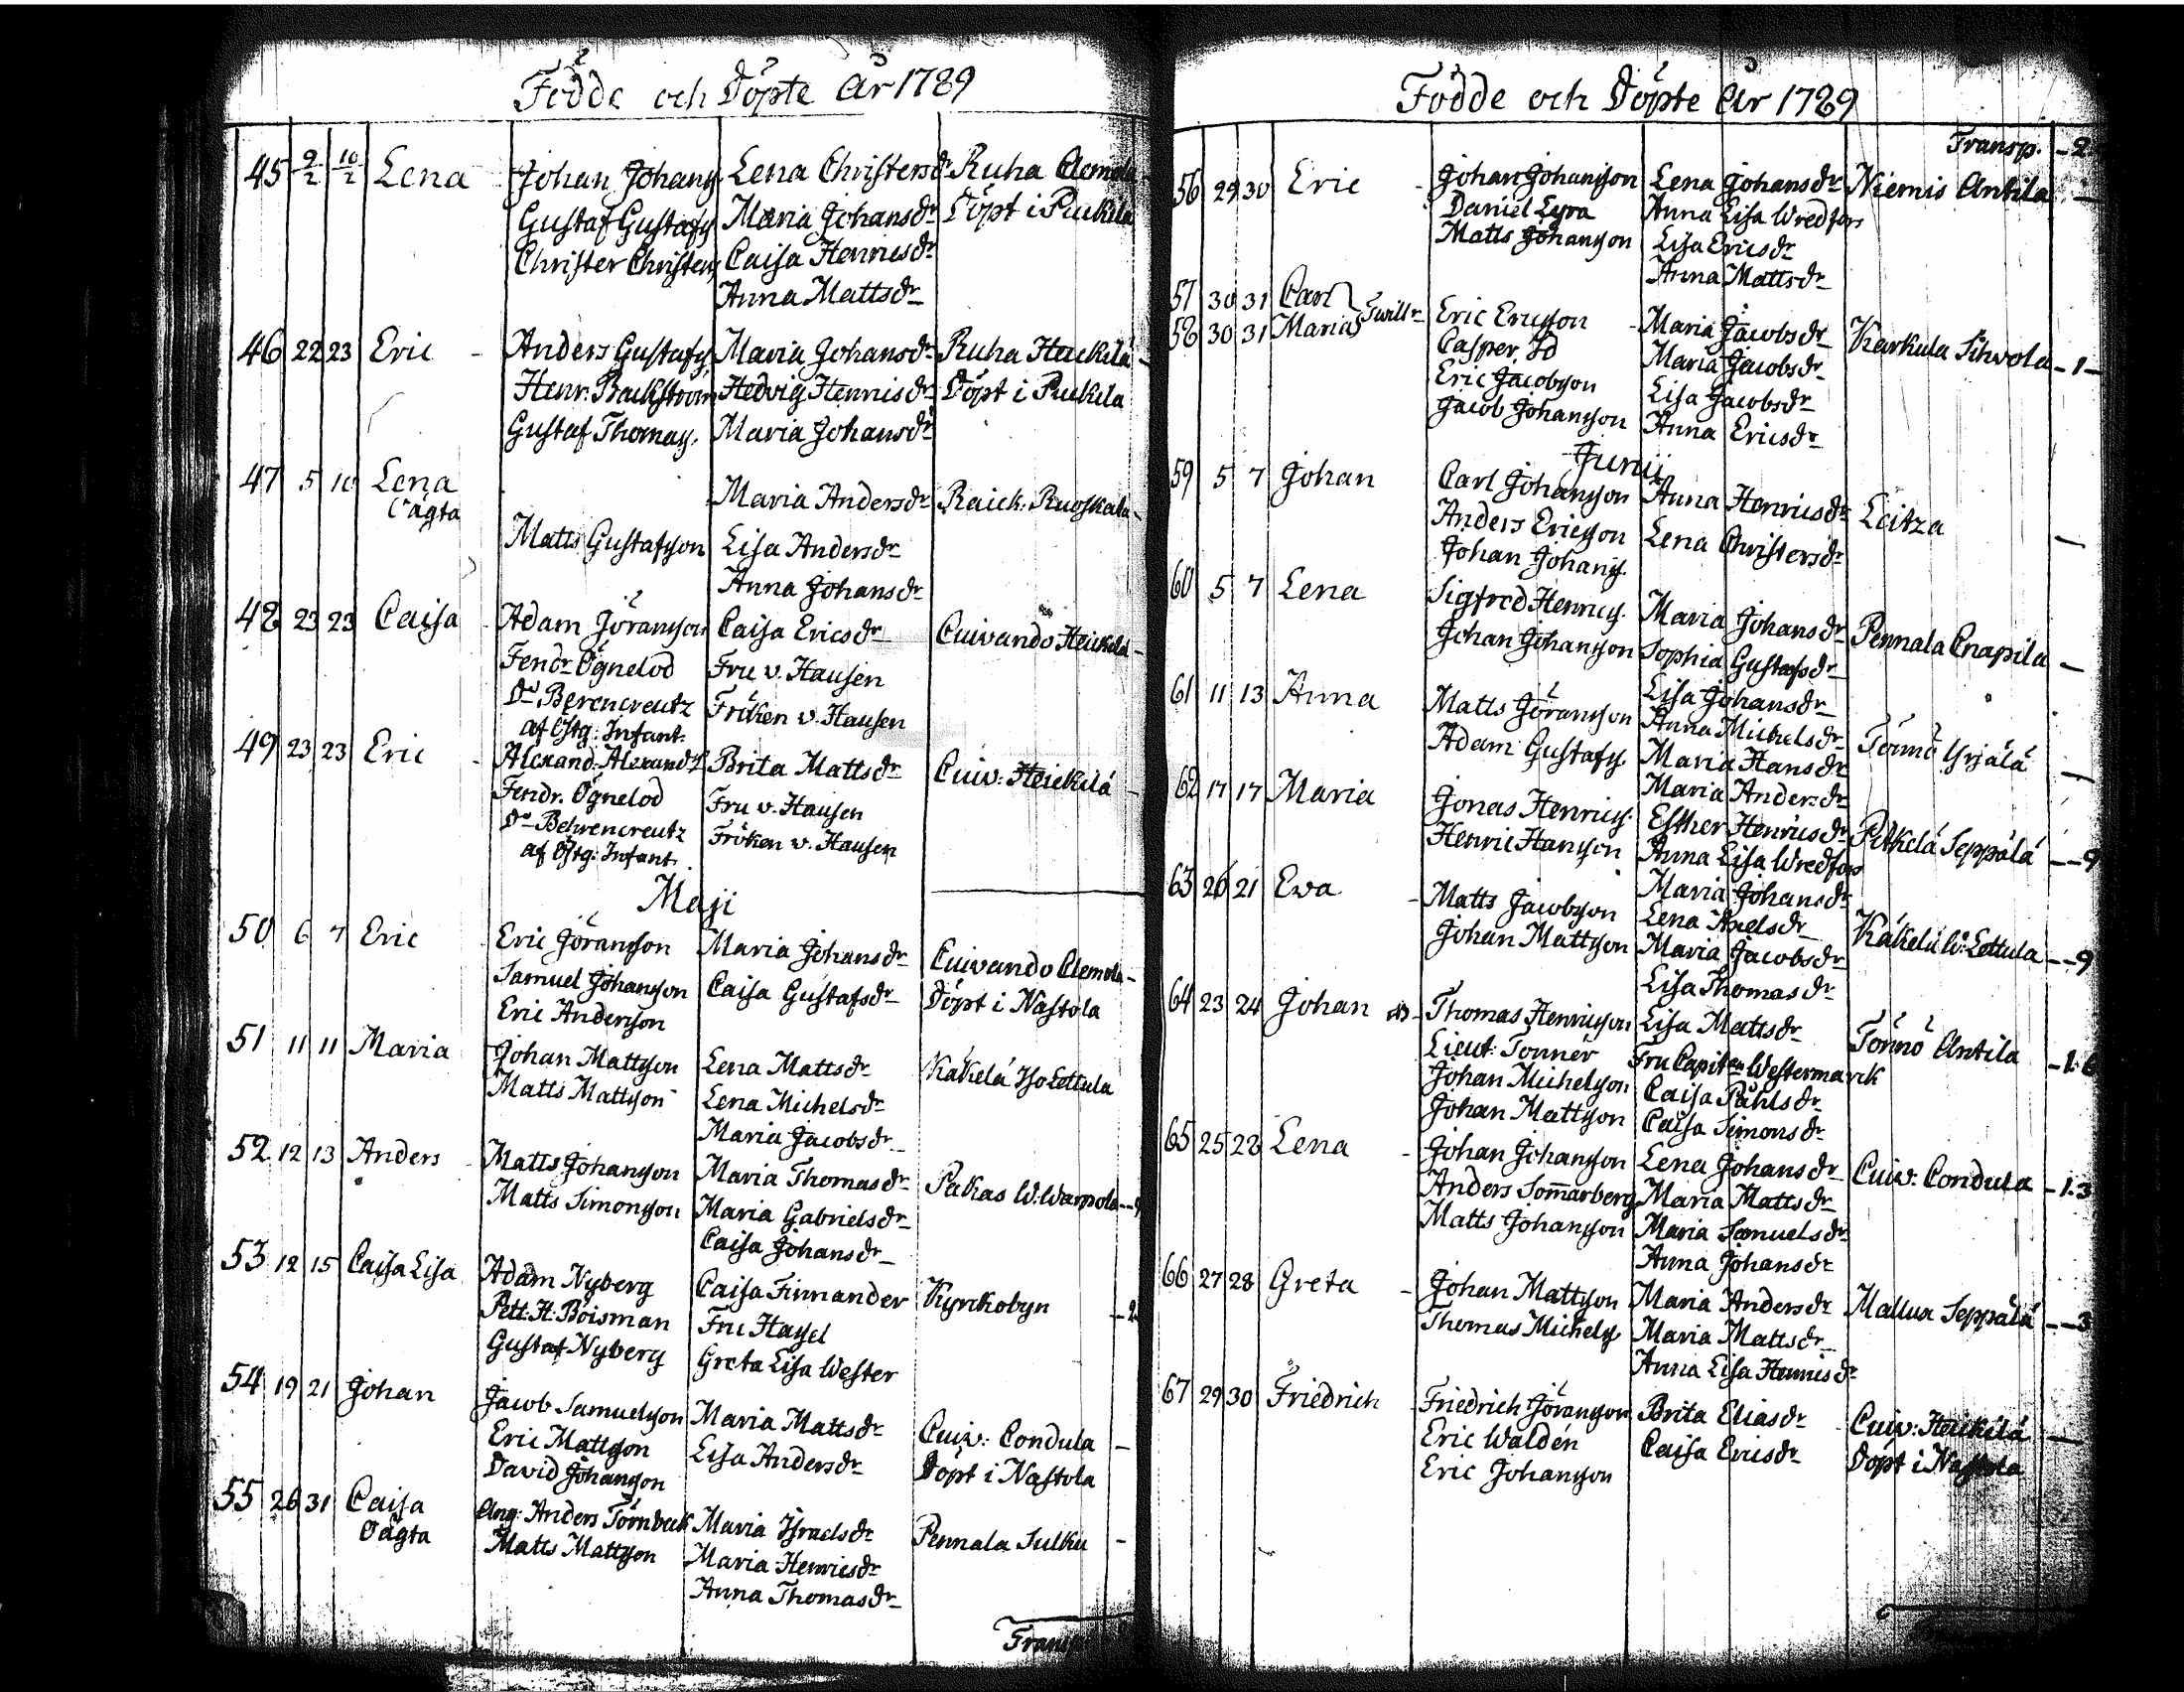 Födde och Döpte År 1789
45 9/2 10/2 Lena Johan Johanss. Lena Christersdr Ruha Clemola
Gustaf Gustafss. Maria Johansdr Döpt i Puckila
Christer Christerss. Caisa Henricsdr
Anna Mattsdr
46 22 23 Eric Anders Gustafss. Maria Johansdr Ruha Heickilä
Henr. Backström Hedvig Henricsdr Döpt i Puckila
Gustaf Thomass. Maria Johansdr
47 5 10 Lena Maria Andersdr Raick. Ruoskala
Oägta
Matts Gustafsson Lisa Andersdr
Anna Johansdr
48 23 23 Caisa Adam Göransson Caisa Ericsdr Cuivando Heickilä
Fendr. Ögnelod Fru v. Hausen
Do Berencreutz Fröken v. Hausen
af Östg: Infant.
49 23 23 Eric Alexand: Alexandss. Brita Mattsdr Cuiv: Heickilä
Fendr. Ögnelod Fru v. Hausen
Do Behrencreutz Fröken v. Hausen
af Östg: Infant.
Maji
50 6 7 Eric Eric Göransson Maria Johansdr Cuivando Clemola
Samuel Johansson Caisa Gustafsdr Döpt i Nastola
Eric Andersson
51 11 11 Maria Johan Mattsson Lena Mattsdr Käkelä Iso Lettula
Matts Mattsson Lena Michelsdr
Maria Jacobsdr
52 12 13 Anders Matts Johansson Maria Thomasdr Pakas W: Warpola - - 9
Matts Simonsson Maria Gabrielsdr
Caisa Johansdr
53 12 15 Caisa Lisa Adam Nyberg Caisa Finnander Kyrckobyn - 2
Pett. H: Boisman Fru Hassel
Gustaf Nyberg Greta Lisa Wester
54 19 21 Johan Jacob Samuelsson Maria Mattsdr Cuiv: Condula -
Eric Mattsson Lisa Andersdr Döpt i Nastola
David Johansson
55 26 31 Caisa Ang. Anders Törnbeck Maria Israelsdr Pennala Sulku -
Oägta Matts Mattsson Maria Henricsdr
Anna Thomasdr
Transp.
Födde och Döpte År 1789
Transp. - 2
56 29 30 Eric Johan Johansson Lena Johansdr Niemis Antila -
Daniel Lyra Anna Lisa Wredfors
Matts Johansson Lisa Ericsdr
Anna Mattsdr
57 30 31 Carl } Twillr Eric Ericsson Maria Jacobsdr Karkula Sihvola - 1 -
58 30 31 Maria Casper Id Maria Jacobsdr
Eric Jacobsson Lisa Jacobsdr
Jacob Johansson Anna Ericsdr
Junii
59 5 7 Johan Carl Johansson Anna Henricsdr Leitza -
Anders Ericsson Lena Christersdr
Johan Johanss.
60 5 7 Lena Sigfred Henricss. Maria Johansdr Pennala Cnapila -
Johan Johansson Sophia Gustafsdr
Lisa Johansdr
61 11 13 Anna Matts Göransson Anna Michelsdr Tönnö Yrjälä -
Adam Gustafss. Maria Hansdr
Maria Andersdr
62 17 17 Maria Jonas Henricss. Esther Henricsdr Pitkelä Seppälä - - 9
Henric Hansson Anna Lisa Wredfors
Maria Johansdr
63 20 21 Ewa Matts Jacobsson Lena Axelsdr Käkelä W: Lettula - - 9
Johan Mattsson Maria Jacobsdr
Lisa Thomasdr
64 23 24 Johan Thomas Henricsson Lisa Mattsdr Tönnö Antila - 1. 6
Lieut: Tonnér Fru Capiten Westermarck
Johan Michelsson Caisa Påhlsdr
Johan Mattsson Caisa Simonsdr
65 25 28 Lena Johan Johansson Lena Johansdr Cuiv: Condula - 1. 3
Anders Sommarberg Maria Mattsdr
Matts Johansson Maria Samuelsdr
Anna Johansdr
66 27 28 Greta Johan Mattsson Maria Andersdr Mallua Seppälä - - 3
Thomas Michelss. Maria Mattsdr
Anna Lisa Henricsdr
67 29 30 Friedrich Friedrich Göransson Brita Eliasdr Cuiv: Heickilä -
Eric Waldén Caisa Ericsdr Döpt i Nastola
Eric Johansson